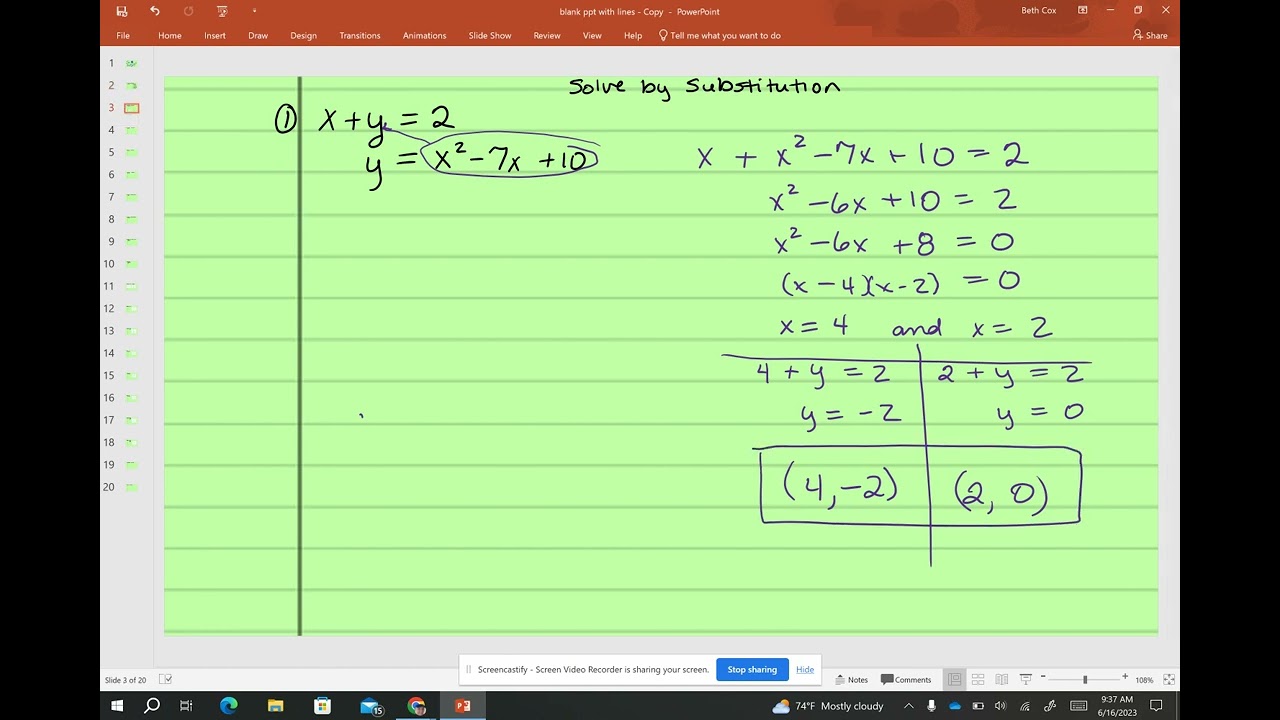 blank ppt with lines - Copy - PowerPoint
Beth Cox
File Home Insert Draw Design Transitions Animations Slide Show Review View Help Tell me what you want to do Share
1
2
3
4
5
6
7
8
9
10
11
12
13
14
15
16
17
18
19
20
Solve by Substitution
① x + y = 2
y = x² - 7x + 10
x + x² - 7x + 10 = 2
x² - 6x + 10 = 2
x² - 6x + 8 = 0
(x - 4)(x - 2) = 0
x = 4 and x = 2
4 + y = 2 2 + y = 2
y = -2 y = 0
(4, -2) (2, 0)
Screencastify - Screen Video Recorder is sharing your screen. Stop sharing Hide
Slide 3 of 20 Notes Comments 108%
15
74°F Mostly cloudy
9:37 AM
6/16/2023